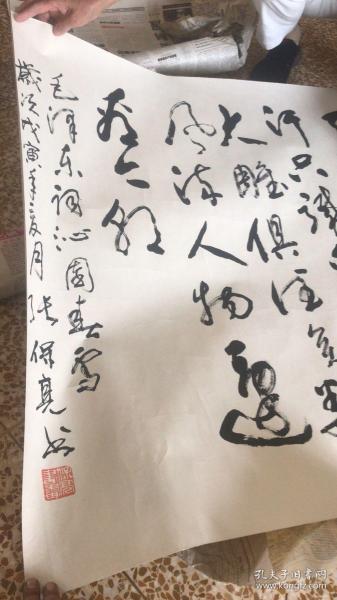 汗只識
大雕俱往矣數
风流人物還
看今朝
毛澤东词沁園春雪
歲次戊寅年夏月 张保亮书
孔夫子旧书网